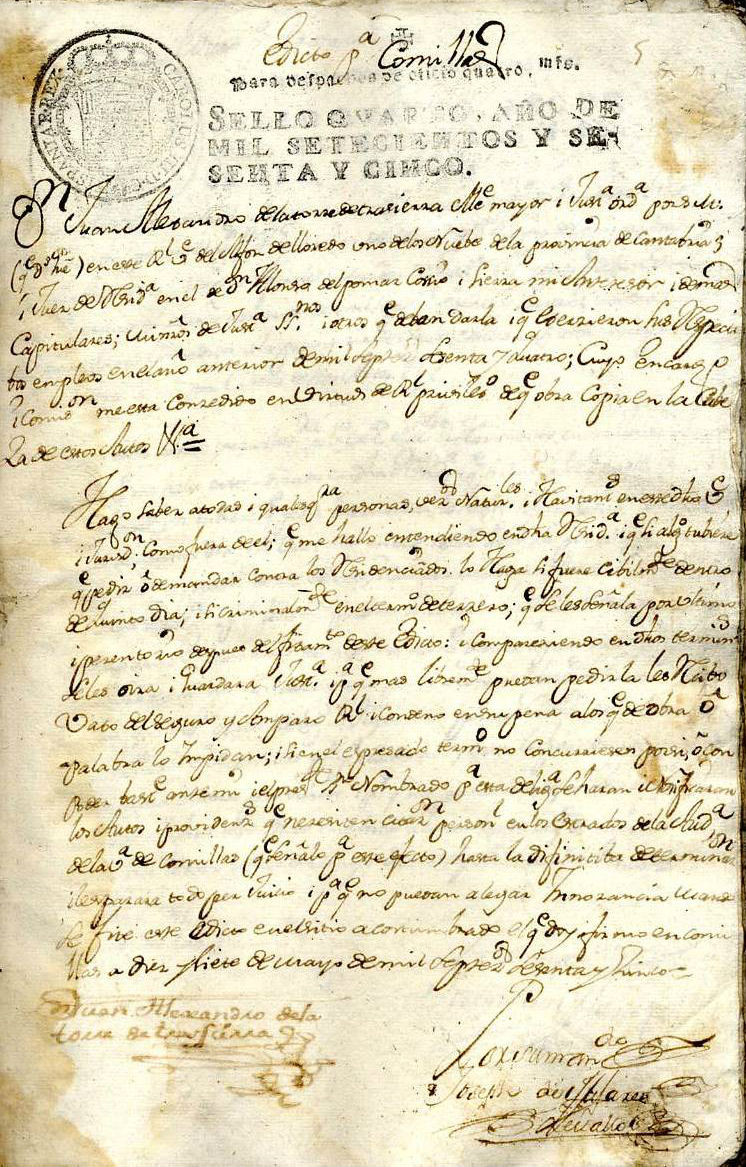 Edicto pa Comillas
Para despachos de oficio quatro mrs.
SELLO QVARTO, AÑO DE
MIL SETECIENTOS Y SE-
SENTA Y CINCO.
CAROLUS III D G HISPANIAR REX
Dn Juan Alexandro de la torre de trasierra Alce mayor i Justa ordª por S. M.
(qe Ds gue) en este Rl Ve del Alfoz de lloredo uno de los Nuebe de la provinciª de Cantabriª
i Juez de Residª en el de Dn Alonso del pomar Cossio i sierra mi Antezesor i demas
Capitulares; Ministros de Justª i otros qe deban darla i qe exerzieron sus Respecti
bos empleos en el año anterior de mil septezs sesenta y quatro; Cuyo encargo
i Comison me esta conzedido en Virtud de Rl privilexo de qe obra Copia en la Cabe
za de estos Autos Xa =
Hago saber a todas i qualesqra personas, Vezos Naturles i Havitantes en este dho Ve
i Jurisdon; Como fuera de el; qe me hallo entendiendo en dha Residª i qe si algo tubiere
qe pedir o demandar contra los Residenciados lo Haga si fuere Cibilmte dentro
de quinto dia; i si criminalmte en el termo de terzero; qe se les señala por Ultimo
i perentorio despues del fixamto de este Edicto: i Compareziendo en dhos terminos
se les oira i Guardara Justª. i pª qe mas libremte puedan pedirla les Rezibo
Vajo del seguro y Amparo Rl i Condeno en su pena a los qe de obra o
palabra lo Impidan; i si en el espresado termo no Concurriesen por si, o con
poder baste ante mi i el preste Sno Nombrado pª esta delixª se haran i Notificaran
los Autos i providens qe nezesiten Citon personl en los Estrados de la Audª
de la Vª de Comillas (qe señalo pª este efecto) hasta la difinitiba determinaon
i les parara todo perjuicio i pª qe no puedan alegar Innorancia Mando
se fixe este Edicto en el sitio acostumbrado el qe doy i firmo en Comi
llas a diez y siete de Mayo de mil septezos sesenta y Zinco =
Dn Juan Alexandro de la
torre de trassierra
Por su mando
Joseph de
Zevallos